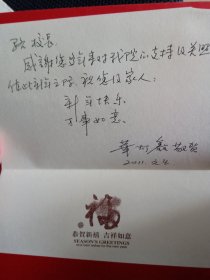 张校长:
感谢您常年来对我院的支持及关照
值此新年之际,祝您及家人:
新年快乐
万事如意
敬贺
2011.2.4
福
恭贺新禧 吉祥如意
SEASON'S GREETINGS